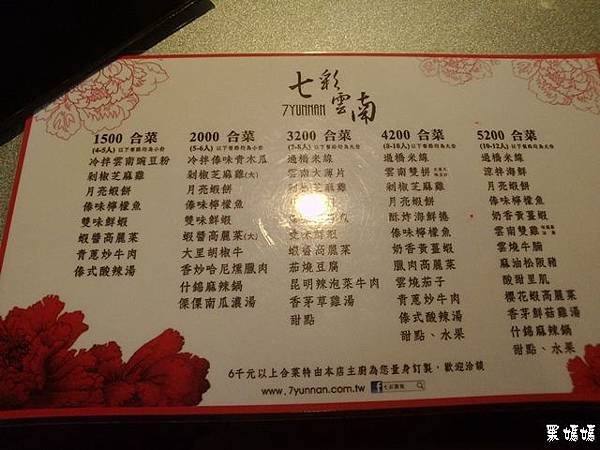 七彩雲南
7YUNNAN
1500 合菜
(4-5人) 以下餐點均為小份
冷拌雲南豌豆粉
剁椒芝麻雞
月亮蝦餅
傣味檸檬魚
雙味鮮蝦
蝦醬高麗菜
青蔥炒牛肉
傣式酸辣湯
2000 合菜
(5-6人) 以下餐點均為小份
冷拌傣味青木瓜
剁椒芝麻雞(大)
月亮蝦餅
傣味檸檬魚
雙味鮮蝦
蝦醬高麗菜(大)
大里胡椒牛
香炒哈尼燻臘肉
什錦麻辣鍋
傈僳南瓜濃湯
3200 合菜
(7-8人) 以下餐點均為大份
過橋米線
雲南大薄片
剁椒芝麻雞
雙味鮮蝦
蝦醬高麗菜
茄燒豆腐
昆明辣泡菜牛肉
香茅草雞湯
甜點
4200 合菜
(8-10人) 以下餐點均為大份
過橋米線
雲南雙拼
剁椒芝麻雞
月亮蝦餅
酥炸海鮮捲
傣味檸檬魚
奶香黃薑蝦
臘肉高麗菜
雲燒茄子
青蔥炒牛肉
傣式酸辣湯
甜點、水果
5200 合菜
(10-12人) 以下餐點均為大份
過橋米線
涼拌海鮮
月亮蝦餅
傣味檸檬魚
奶香黃薑蝦
雲南雙雞
雲燒牛腩
麻油松阪豬
酸甜里肌
櫻花蝦高麗菜
香茅鮮菇雞湯
什錦麻辣鍋
甜點、水果
6千元以上合菜特由本店主廚為您量身訂製，歡迎洽談
www.7yunnan.com.tw
七彩雲南
栗媽媽